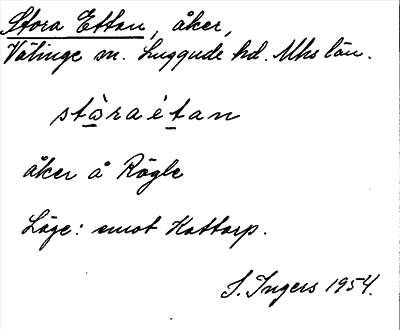 Stora Ettan, åker,
Välinge sn. Luggude hd. Mhs län.
stòraétan
åker å Rögle
Läge: emot Kattarp.
I. Ingers 1954.